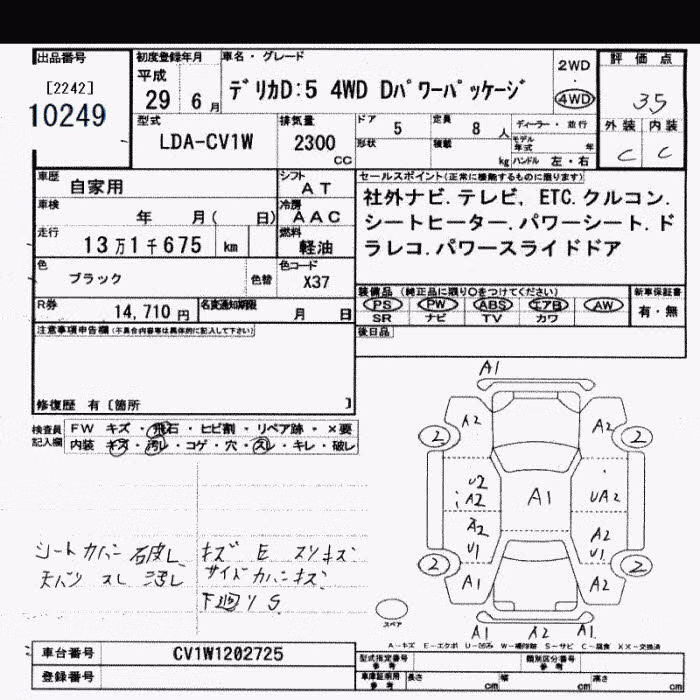 出品番号
[2242]
10249
初度登録年月
平成
29 6 月
車名・グレード
デリカD:5 4WD Dパワーパッケージ
2WD
・
4WD
評価点
3.5
外装 内装
C C
型式
LDA-CV1W
排気量
2300
CC
ドア 5
定員 8 人
ディーラー・並行
形状
積載
kg
モデル年式 年
ハンドル 左・右
車歴
自家用
シフト
AT
車検
年 月( 日)
冷房
AAC
走行
13万1千675 km
燃料
軽油
色
ブラック
色替
色コード
X37
R券
14,710 円
名変通知期限
月 日
セールスポイント(正常に機能するものに限ります)
社外ナビ.テレビ, ETC.クルコン.
シートヒーター.パワーシート.ド
ラレコ.パワースライドドア
装備品 (純正品に限り○をつけてください)
PS PW ABS エアB AW
SR ナビ TV カワ
新車保証書
有・無
後日品
注意事項申告欄(不具合内容等は具体的に記入して下さい)
修復歴 有 [箇所 ]
検査員記入欄
FW キズ・飛石・ヒビ割・リペア跡・×要
内装 キズ・汚レ・コゲ・穴・スレ・キレ・破レ
シートカバー 破レ
天バリ スレ 汚レ
キズ E スリキズ
サイドカバーキズ
下廻り S
A1
A2 A2
2 2
U2
A2
A1
UA2
A2
U1
A2
U1
2 2
A1 A2
A1 A2 A1
スペア
A-キズ E-エクボ U-凹み W-補修跡 S-サビ C-腐食 XX-交換済
車台番号
CV1W1202725
登録番号
型式指定番号
参考
類別区分番号
参考
車庫証明用
参考
長さ cm
幅 cm
高さ cm